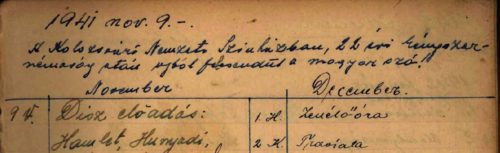 1941 nov. 9.-
A Kolozsvári Nemzeti Színházban, 22 évi kényszer-
némaság után ujból felcsendült a magyar szó!
November December.
9 V. Disz előadás: 1. H. Zenélőóra
Hamlet, Hunyadi, 2 K Traviata